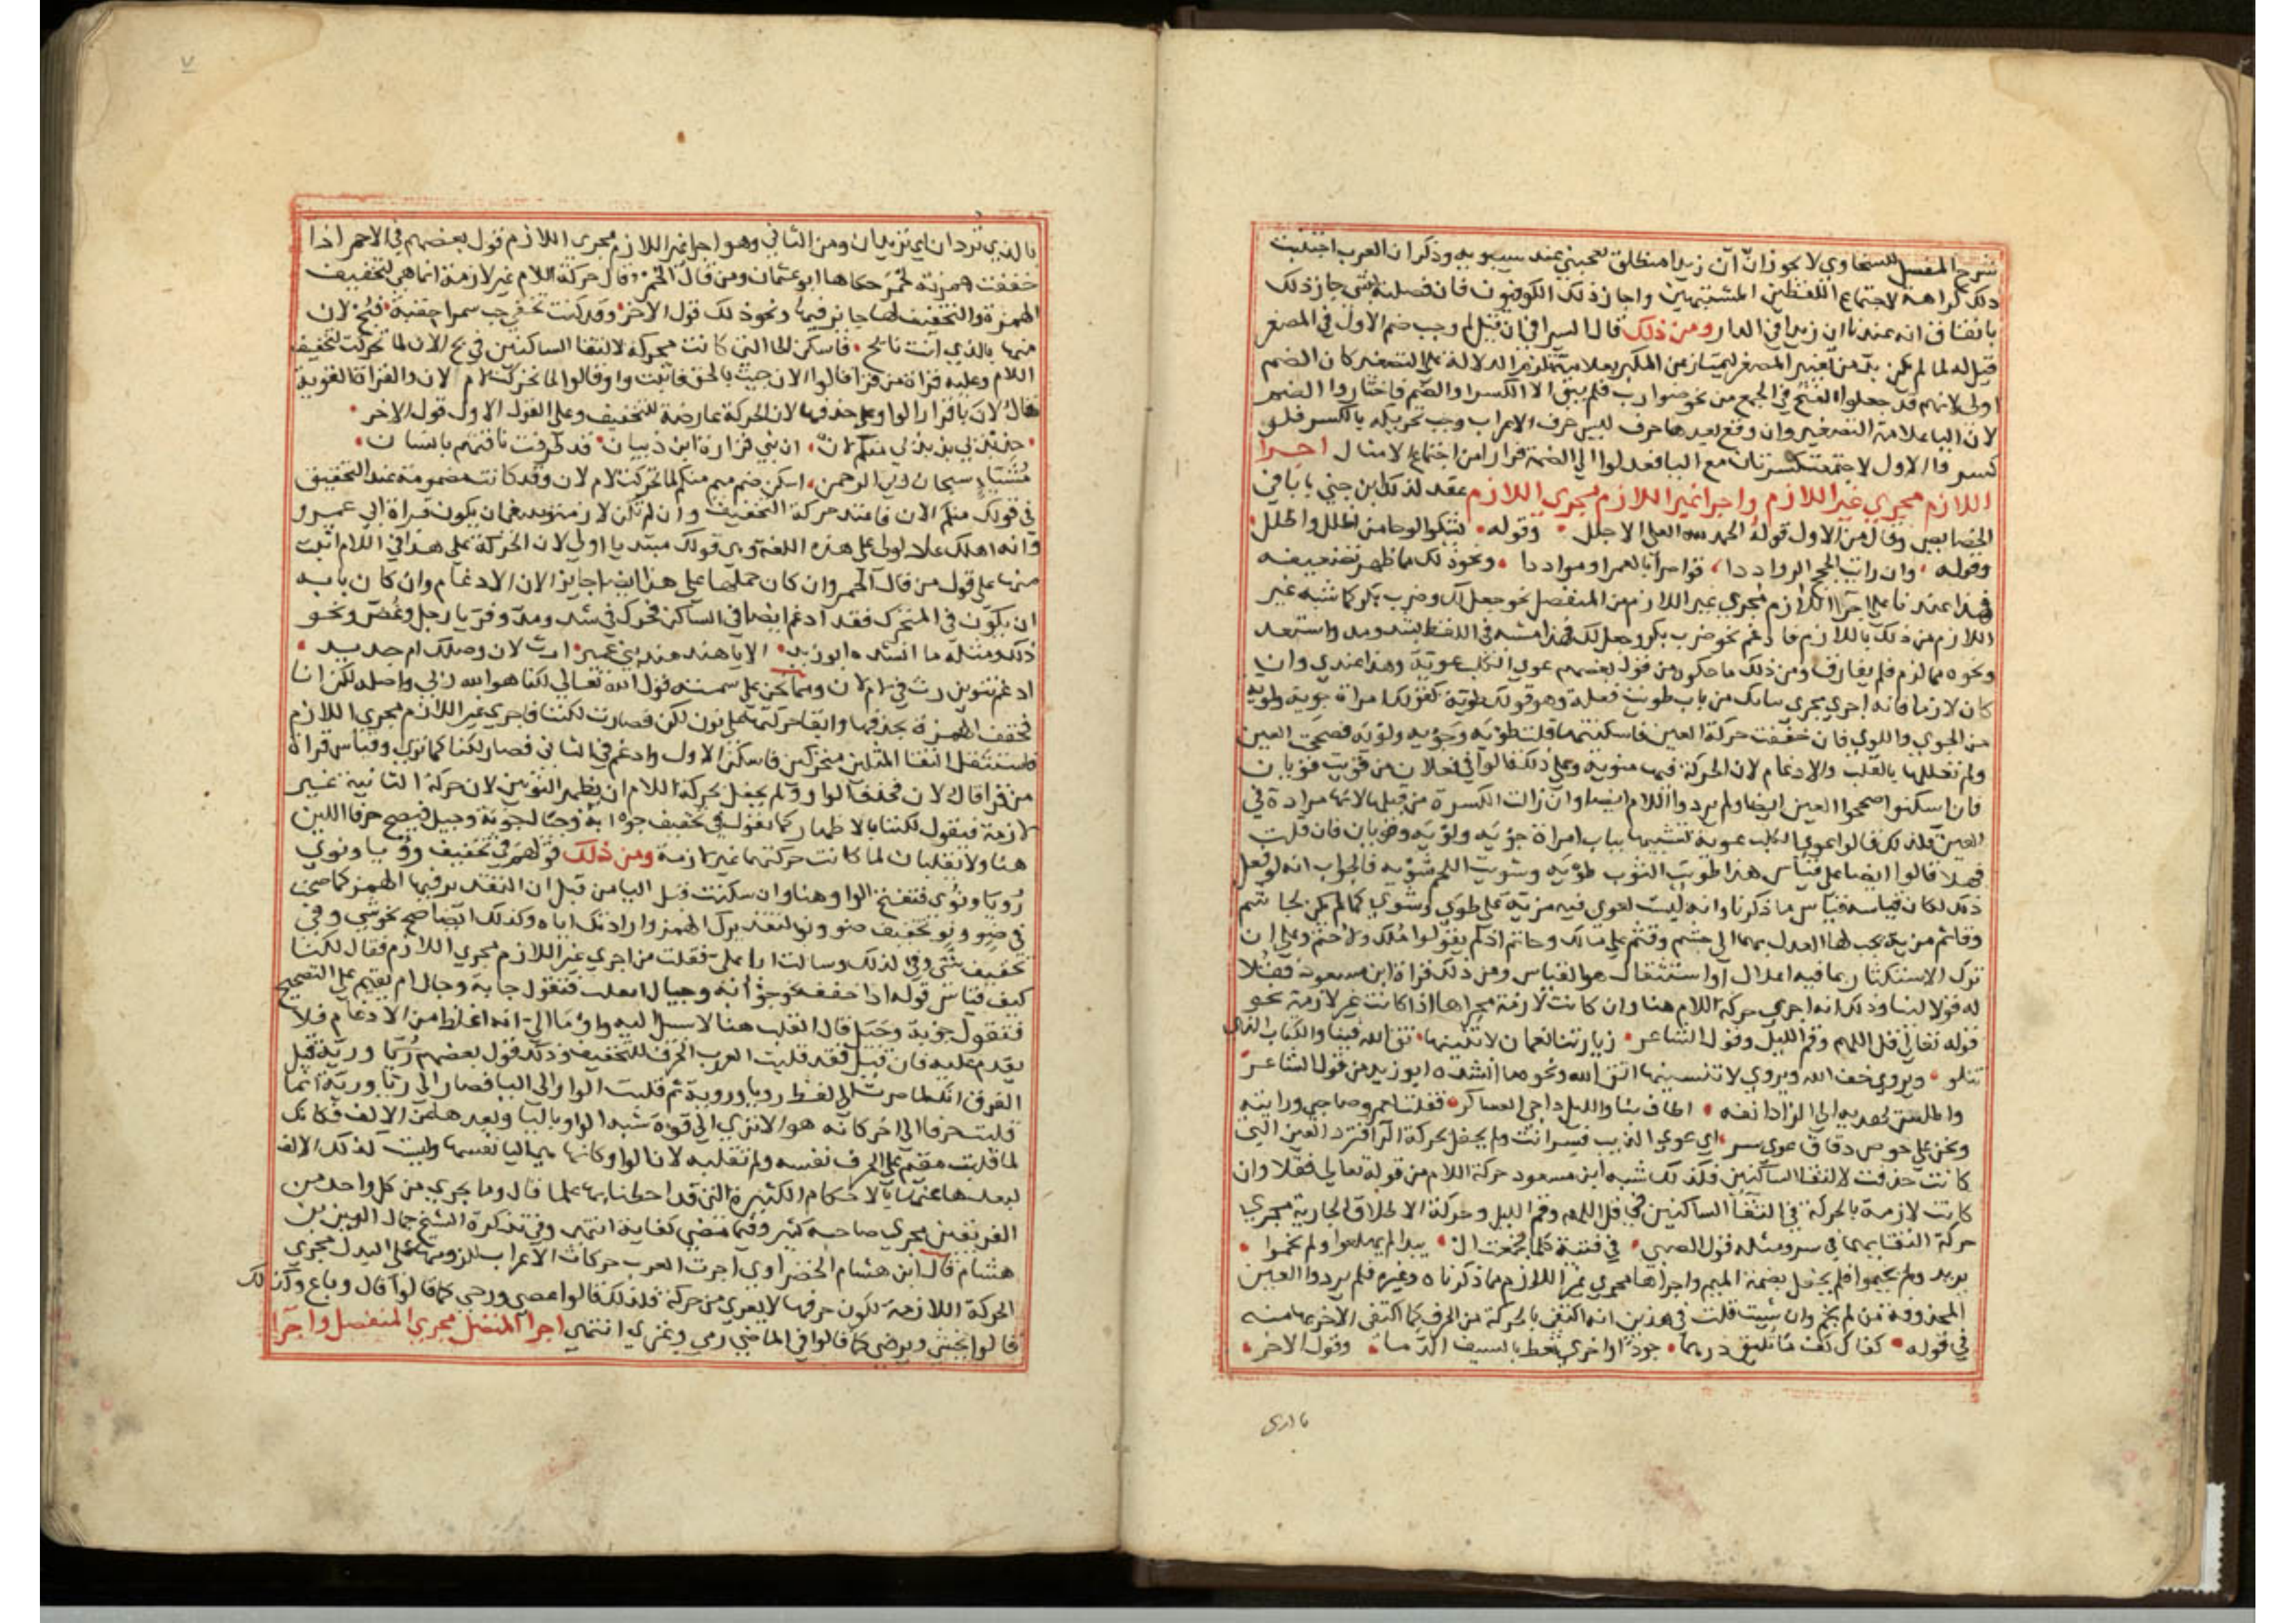 شرح المفصل للسخاوي لا يجوز انّ أن زيدا منطلق تعجبني عند سيبويه وذكر ان العرب اجتنبت
ذلك كراهة لاجتماع اللفظين المشتبهين واجاز ذلك الكوفيون فان فصلت بشي جاز ذلك
باتفاق ان عندنا ان زيدا في الدار ومن ذلك قال السيرافي ان قيل لم وجب ضم الاول في المصغر
قيل له لما لم يكن بد من تغيير المصغر ليمتاز عن المكبر بعلامة تلزم الدلالة على التصغير كان الضم
اولى لانهم قد جعلوا الفتح في الجمع من نحو ضوارب فلم يبق الا الكسر والضم فاختاروا الضم
لان اليا علامة التصغير وان وقع بعدها حرف ليس حرف الاعراب وجب تحريكه بالكسر فلو
كسروا الاول لاجتمعت كسرتان مع اليا فعدلوا الى الضمة فرارا من اجتماع الامثال اجرا
اللازم مجرى غير اللازم واجرا غير اللازم مجرى اللازم عقد لذلك ابن جني بابا في
الخصايص وقال من الاول قوله الحمد لله العلي الاجلل وقوله تشكو الوجا من اظلل واظلل
وقوله وان رايت الحجج الرواددا قواصرا بالعمر او مواددا ونحو ذلك مما ظهر تضعيفه
فهذا عندنا على اجرا اللازم مجرى غير اللازم من المنفصل نحو جعل لك وضرب بكر كما شبه غير
اللازم من ذلك باللازم فادغم نحو ضرب بكر وجعل لك فهذا مشبه في اللفظ بشد ومد واستعد
ونحوه مما لزم فلم يفارق ومن ذلك ما حكوه من قول بعضهم عوى الكلب عوية وهذا عندي وان
كان لازما فانه اجري مجرى بابك من باب طويت فعلة وهو قولك طوية كقولك امراة جوية ولوية
من الجوي واللوي فان خففت حركة العين فاسكنتها قلت طوْية وجوْية ولوْية فصحت العين
ولم تعللها بالقلب والادغام لان الحركة فيها منوية وعلى ذلك قالوا في فعلان من قويت قويان
فان اسكنوا صححوا العين ايضا ولم يردوا اللام ايضا وان زالت الكسرة من قبلها لانها مرادة في
العين فلذلك قالوا عوى الكلب عوية تشبيها بباب امراة جوية ولوية وقويان فان قلت
فهلا قالوا ايضا على قياس هذا طويت الثوب طوية وشويت اللحم شوية فالجواب انه لو فعل
ذلك لكان قياسه قياس ما ذكرنا وانه ليست لعوى فيه مزية على طوى وشوى كما لم يكن لجاشم
وقاثم مزية يجب لها العدل بهما الى جشم وقثم على مالك وحاتم اذ لم يقولوا ملك ولا حتم وعلى ان
ترك الاستكثار مما فيه اعلال او استثقال هو القياس ومن ذلك قراة ابن مسعود فقلا
له قولا لينا وذلك انه اجرى حركة اللام هنا وان كانت لازمة مجراها اذا كانت غير لازمة نحو
قوله تعالى قل اللهم وقم الليل وقول الشاعر زيادتنا نعمان لا تنسينها تق الله فينا والكتاب الذي
تتلو ويروى خف الله ويروى لا تنسينها اتق الله ونحو ما انشده ابو زيد من قول الشاعر
واطلس يهديه الى الزاد انفه اطاف بنا والليل داجي العساكر فقلت لعمرو صاحبي ورايته
ونحن على خوص دقاق عوى سر اي عوى الذيب فسر انت ولم يحفل بحركة الرا فترد العين التي
كانت حذفت لالتقا الساكنين فكذلك شبه ابن مسعود حركة اللام من قوله تعالى فقلا وان
كانت لازمة بالحركة في التقا الساكنين في قل اللهم وقم الليل وحركة الاطلاق الجارية مجرى
حركة التقايهما في سر ومثله قول الضبي في فتية كلما تجمعت ال بيدا لم يهلعوا ولم يخموا
يريد ولم يخيموا فلم يحفل بضمة الميم واجراها مجرى غير اللازم مما ذكرناه وغيره فلم يردوا العين
المحذوفة من لم يخم وان شيت قلت في هذين انه اكتفى بالحركة من الحرف كما اكتفى الاخر بها منه
في قوله كفاك كف ما تليق درهما جودا واخرى تعط بالسيف الدما وقول الاخر
بالذي تردان اي تريدان ومن الثاني وهو اجرا غير اللازم مجرى اللازم قول بعضهم في الاحمر اذا
خففت همزته لحمر حكاها ابو عثمان ومن قال الحمر قال حركة اللام غير لازمة انما هي لتخفيف
الهمزة والتحقيق لها جايز فيها ونحو ذلك قول الاخر وقد كنت تخفي حب سمرا حقبة فبح لان
منها بالذي انت بائح فاسكن الحا التي كانت متحركة لالتقا الساكنين في بح الان لما تحركت لتخفيف
اللام وعليه قراة من قرا قالوا الان جيت بالحق فاثبت واو قالوا لما تحركت لام لان والقراة القوية
قال لان باقرار الواو على حذفها لان الحركة عارضة للتخفيف وعلى القول الاول قول الاخر
حدبدبى بدبدبى منكم لان ان بني فزارة ابن ذبيان قد طرقت ناقتهم بانسان
مشيا سبحان ربي الرحمن اسكن ضم ميم منكم لما تحركت لام لان وقد كانت مضمومة عند التحقيق
في قولك منكم الان فاعتد حركة التخفيف وان لم تكن لازمة وينبغي ان يكون قراة ابي عمرو
وانه اهلك عادا لولى على هذه اللغة وهي قولك مبتديا اولى لان الحركة على هذا في اللام اثبت
منها على قول من قال الحمر وان كان حملها على هذا ايضا جايزا لان الادغام وان كان بابه
ان يكون في المتحرك فقد ادغم ايضا في الساكن فحرك في شد ومد وفر يا رجل وغض ونحو
ذلك ومثله ما انشده ابو زيد الا يا هند هند بني عمير ارث لان وصلك ام جديد
ادغم تنوين رث في لام لان ومما نحن على سمته قول الله تعالى لكنا هو الله ربي واصله لكن انا
فخفف الهمزة بحذفها والقا حركتها على نون لكن فصارت لكننا فاجرى غير اللازم مجرى اللازم
فاستثقل التقا المثلين متحركين فاسكن الاول وادغم في الثاني فصار لكنا كما ترى وقياس قراة
من قرا قال لان فحذف الواو ولم يحفل بحركة اللام ان يظهر النونين لان حركة الثانية غير
لازمة فيقول لكننا بالاظهار كما يقول في تخفيف جوابة وجيال جوبة وجيل فيصح حرفا اللين
هنا ولا يقلبان لما كانت حركتهما غير لازمة ومن ذلك قولهم في تخفيف رؤيا ونؤي
رويا ونوي فتصح الواو هنا وان سكنت قبل اليا من قبل ان التقدير فيها الهمز كما صحتا
في ضو ونو تخفيف ضوء ونوء لتقديرك الهمز وارادتك اياه وكذلك ايضا صح نحو شي وفي
تخفيف شيء وفيء لذلك وسالت ابا علي فقلت من اجرى غير اللازم مجرى اللازم فقال لكنا
كيف قياس قوله اذا خفف نحو جوأبة وجيال ايقلب فيقول جابة وجال ام يقيم على التصحيح
فيقول جوبة وجيل قال القلب هنا لا سبيل اليه واوما الى انه اغلظ من الادغام فلا
يقدم عليه فان قيل فقد قلبت العرب الحرف للتخفيف وذلك قول بعضهم ريا ورية قيل
الفرق انك لما صرت الى لفظ رويا وروية ثم قلبت الواو الى اليا فصار الى ريا ورية انما
قلبت حرفا الى اخر كانه هو الا ترى الى قوة شبه الواو باليا وبعدها من الالف فكانك
لما قلبت مقيم على الحرف نفسه ولم تقلبه لان الواو كانها هي اليا نفسها وليست كذلك الالف
لبعدها عنهما بالاحكام الكثيرة التي قد احطنا بها علما قال وما يجري من كل واحد من
الفريقين مجرى صاحبه كثير وفيما مضى كفاية انتهى وفي تذكرة الشيخ جمال الدين بن
هشام قال ابن هشام الخضراوي اجرت العرب حركات الاعراب للزومها على البدل مجرى
الحركة اللازمة لكون حرفها لا يعرى من حركة فلذلك قالوا عصى ورحى كما قالوا قال وباع وكذلك
قالوا يخشى ويرضى كما قالوا في الماضي رمى وغزى انتهى اجرا المتصل مجرى المنفصل واجرا